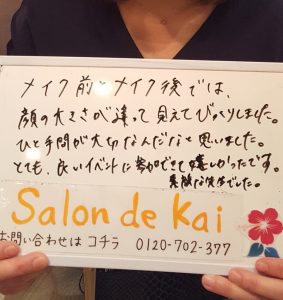 メイク前とメイク後では、
顔の大きさが違って見えてびっくりしました。
ひと手間が大切なんだなと思いました。
とても、良いイベントに参加できて嬉しかったです。
素敵な先生でした。
Salon de Kai
お問い合わせは コチラ 0120-702-377